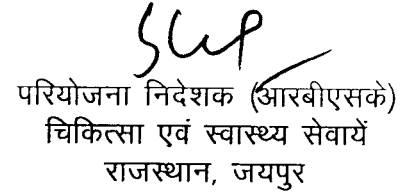 परियोजना निदेशक (आरबीएसके)
चिकित्सा एवं स्वास्थ्य सेवायें
राजस्थान, जयपुर